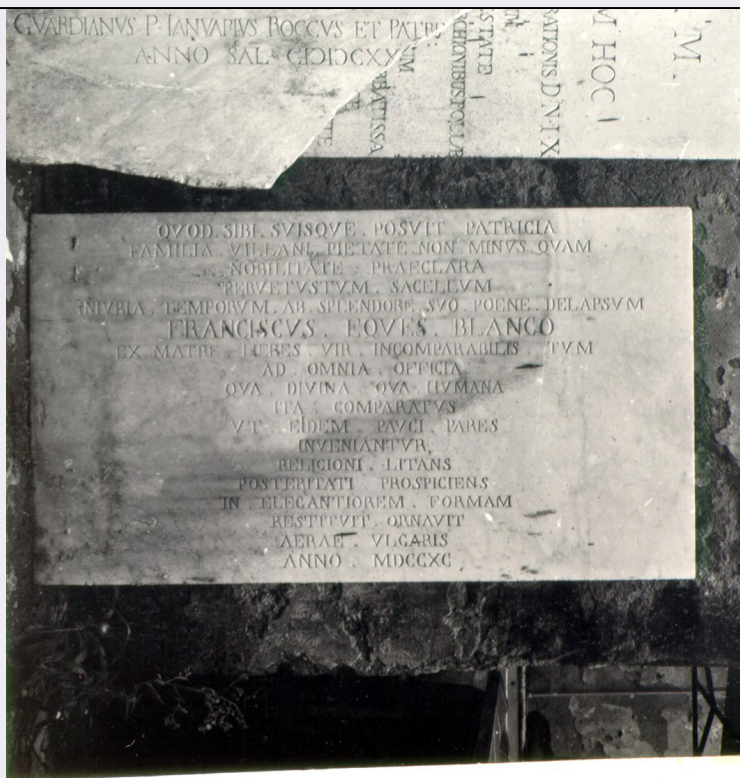 GVARDIANVS P. IANVARIVS ROCCVS ET PATRE
ANNO SAL. CIƆIƆCXX
STATE
CHRONIBVS POLLÆ
RBATISSA
RATIONIS D. N. I. X
M HOC
M.
QVOD. SIBI. SVISQVE. POSVIT. PATRICIA
FAMILIA. VILLANI. PIETATE. NON. MINVS. QVAM
NOBILITATE. PRAECLARA
PERVETVSTVM. SACELLVM
INIVRIA. TEMPORVM. AB. SPLENDORE. SVO. POENE. DELAPSVM
FRANCISCVS. EQVES. BLANCO
EX. MATRE. HERES. VIR. INCOMPARABILIS. TVM
AD. OMNIA. OFFICIA
QVA. DIVINA. QVA. HVMANA
ITA. COMPARATVS
VT. EIDEM. PAVCI. PARES
INVENIANTVR,
RELIGIONI. LITANS
POSTERITATI. PROSPICIENS
IN. ELEGANTIOREM. FORMAM
RESTITVIT. ORNAVIT
AERAE. VLGARIS
ANNO. MDCCXC